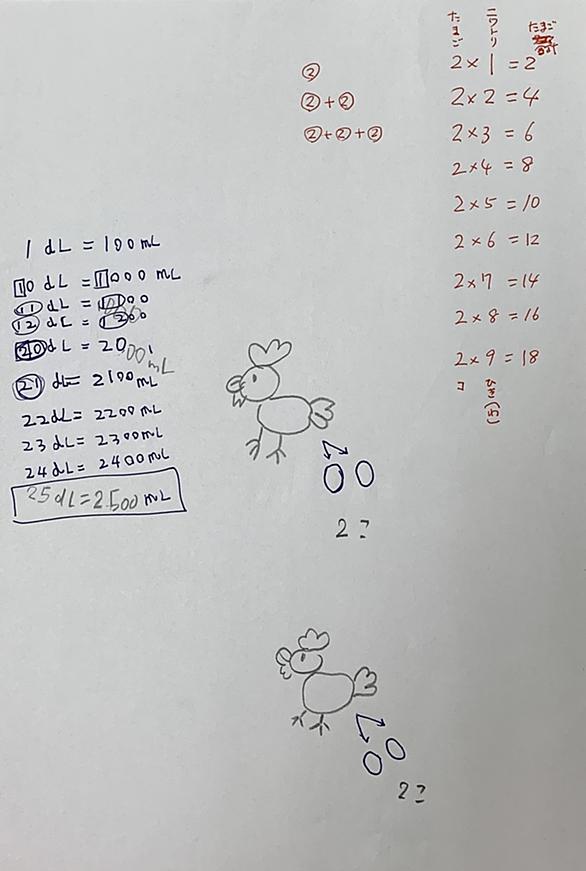 たまご ニワトリ たまご
合計
2×1=2
2×2=4
2×3=6
2×4=8
2×5=10
2×6=12
2×7=14
2×8=16
2×9=18
コ ひき(わ)
②
②+②
②+②+②
1 dL = 100 mL
10 dL = 1000 mL
11 dL = 1100
12 dL = 1200
20 dL = 2000 mL
21 dL = 2100 mL
22dL = 2200 mL
23 dL = 2300 mL
24 dL = 2400 mL
25dL=2500 mL
2コ
2コ